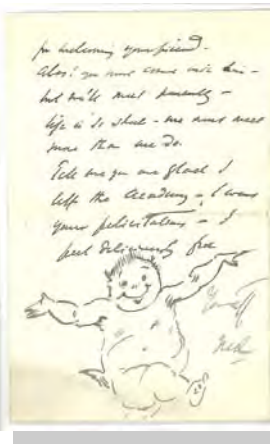 for welcoming your friend -
Alas! you must come with him -
but we'll meet presently -
life is so short - we must meet
more than we do.
Tell me you are glad I
left the Academy - I want
your felicitations - I
feel deliciously free